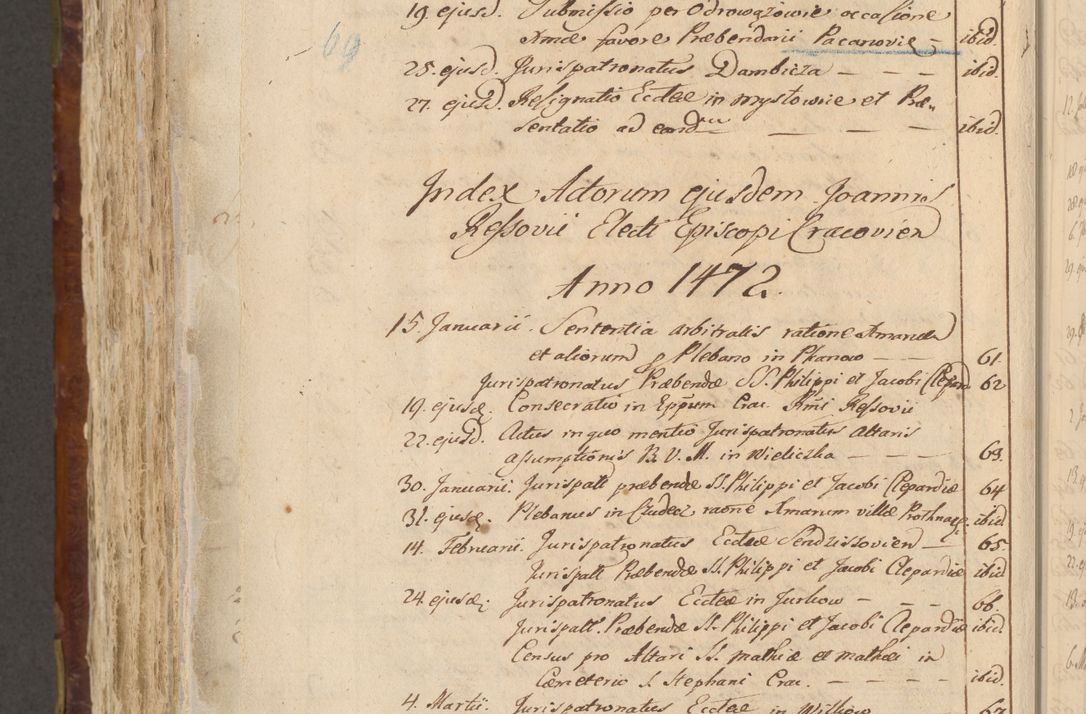 19. ejusd. Submissio per Odrowązowie occasione
Armæ favore Præbendarii Pacanoviæ – ibid.
69
25. ejusd. Jurispatronatus Dambicza – – – ibid.
27. ejusd. Resignatio Eccleæ in Mysłowice et Præ„
sentatio ad eand – – – – ibid.
Index Actorum ejusdem Joannis
Ressovii Electi Episcopi Cracovien
Anno 1472.
15. Januarii. Sententia arbitralis ratione
et aliorum p Plebano in – – 61.
Jurispatronatus Præbendæ SS. Philippi et Jacobi Clepard 62
19. ejusd. Consecratio in Eppum Crac. Rmi Ressovii
22. ejusd. Actus in quo mentio Jurispatronatus Altaris
assumptionis B. V. M. in Wieliczka – – – – 63.
30. Januarii. Jurispatt præbendæ SS. Philippi et Jacobi Clepardiæ 64
31. ejusd. Plebanus in Czudecz raone villæ ibid
14. Februarii. Jurispatronatus Eccleæ Sendziszovien – 65.
Jurispatt Præbendæ SS. Philippi et Jacobi Clepardiæ ibid
24. ejusd. Jurispatronatus Eccleæ in Jurkow – – – 66.
Jurispatt. Præbendæ SS. Philippi et Jacobi Clepardiæ ibid.
Census pro Altari SS. Mathiæ et Mathæi in
Cœmeterio S. Stephani Crac. – – – – ibid.
4. Martii. Jurispatronatus Eccleæ in Wilkow – – 67